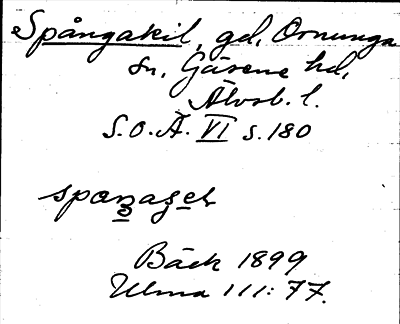 Spångakil, gd, Ornunga
sn, Gäsene hd,
Älvsb. l.
S.O.Ä. VI s.180
Bäck 1899
Ulma 111:77.